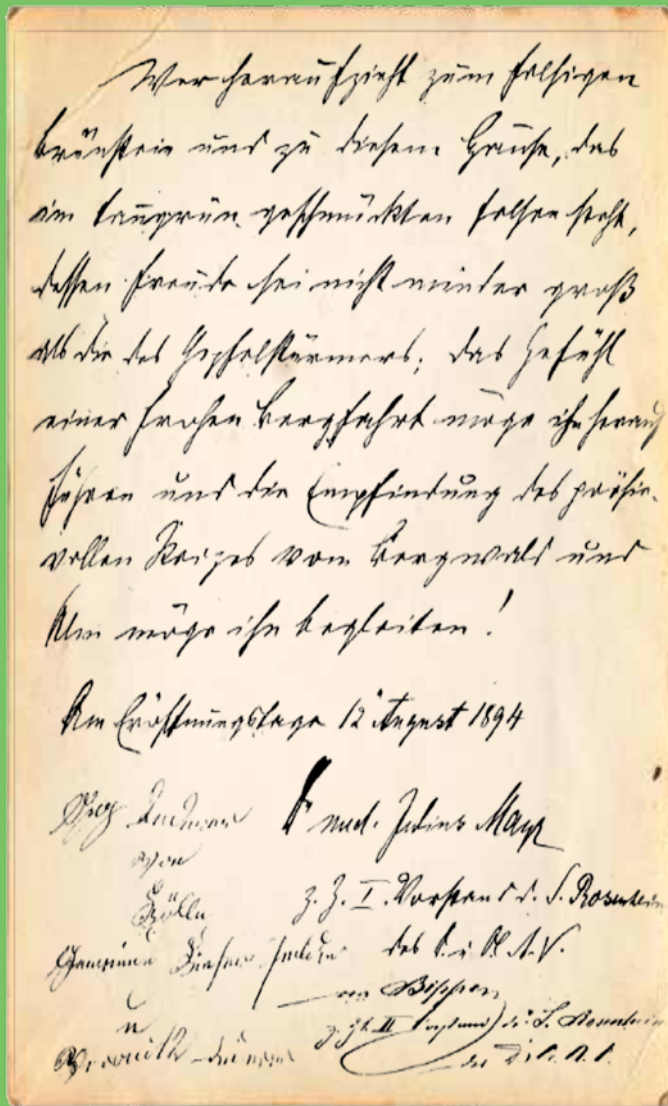 Wer heraufzieht zum felsigen
Brünstein und zu diesem Hause, das
im tanngrün geschmückten Felsen steht,
dessen Freude sei nicht minder groß
als die des Gipfelstürmers; das Gefühl
einer frohen Bergfahrt möge ihn herauf
führen und die Empfindung des poesie-
vollen Reizes vom Bergwald und
Alm möge ihn begleiten!
Am Eröffnungstage 12 August 1894
Dr med. Julius Mayr
von
z. Z. I. Vorstand d. S. Rosenheim
des D. u. Ö. A. V.
z. Zt. II Vorstand d. S. Rosenheim
des D. u. Ö. A. V.